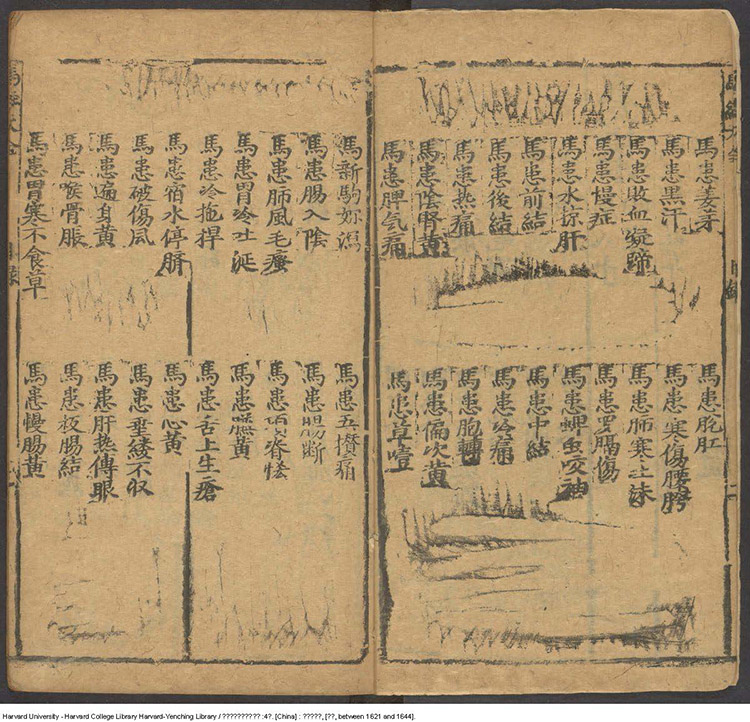 馬患姜芽
馬患黑汗
馬患敗血凝蹄
馬患慢症
馬患水掠肝
馬患前結
馬患後結
馬患熱痛
馬患陰腎黃
馬患脾氣痛
馬患脫肛
馬患寒傷腰胯
馬患肺寒吐沫
馬患羅膈傷
馬患中結
馬患冷痛
馬患胞轉
馬患偏次黃
馬患草噎
目錄
馬新駒奶瀉
馬患腸入陰
馬患肺風毛瘙
馬患胃冷吐涎
馬患冷拖桿
馬患宿水停臍
馬患破傷風
馬患遍身黃
馬患喉骨脹
馬患胃寒不食草
馬患五攢痛
馬患腸斷
馬患臁黃
馬患舌上生瘡
馬患心黃
馬患垂縷不収
馬患肝熱傳眼
馬患板腸結
馬患慢腸黃
Harvard University - Harvard College Library Harvard-Yenching Library / ?????????? :4?. [China] : ?????, [??, between 1621 and 1644].